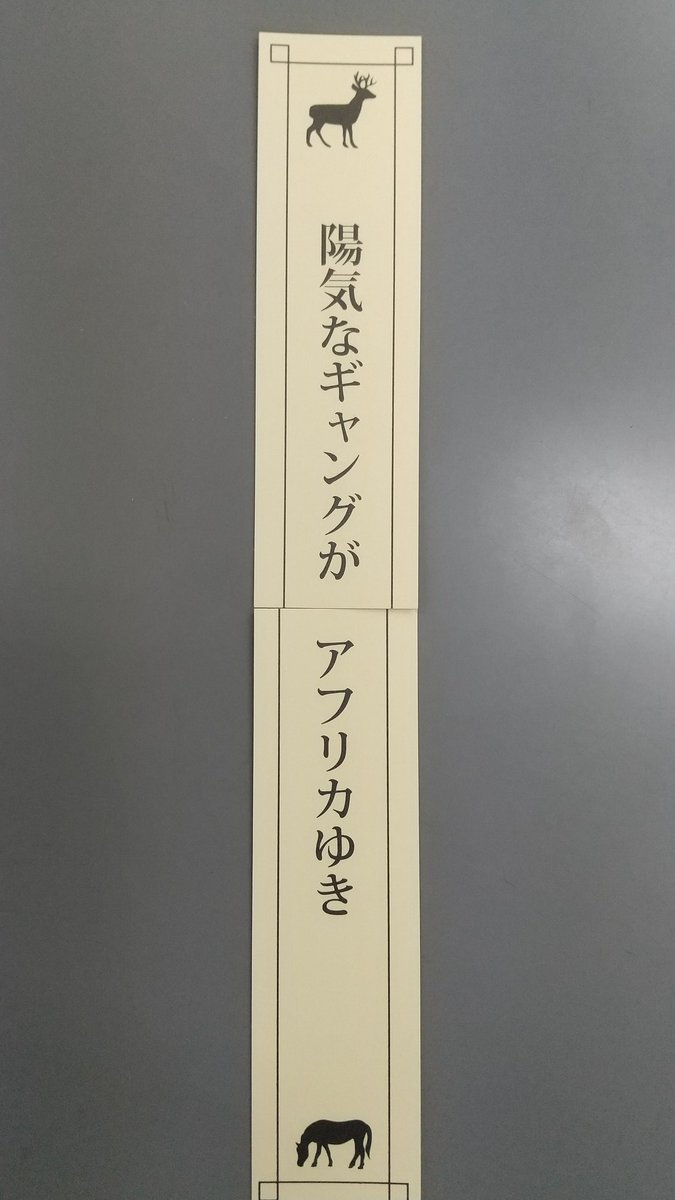 陽気なギャングが
アフリカゆき